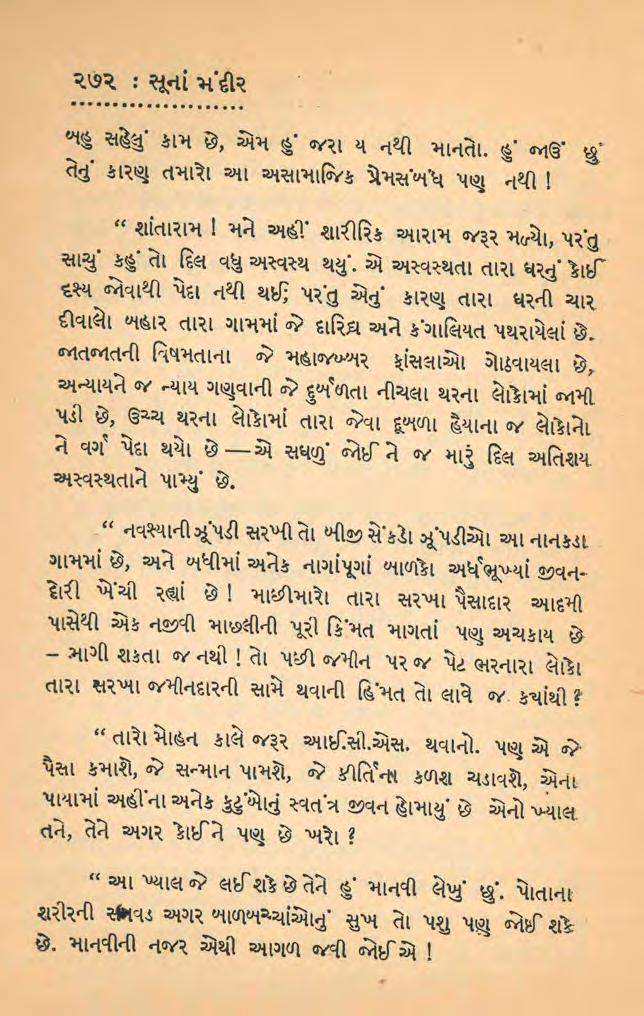 ૨૭૨ : સૂનાં મંદીર
બહુ સહેલું કામ છે, એમ હું જરા ય નથી માનતો. હું જાઉં છું
તેનું કારણ તમારો આ અસામાજિક પ્રેમસંબંધ પણ નથી !
“ શાંતારામ ! મને અહીં શારીરિક આરામ જરૂર મળ્યો, પરંતુ
સાચું કહું તો દિલ વધુ અસ્વસ્થ થયું. એ અસ્વસ્થતા તારા ઘરનું કોઈ
દૃશ્ય જોવાથી પેદા નથી થઈ; પરંતુ એનું કારણ તારા ઘરની ચાર
દીવાલો બહાર તારા ગામમાં જે દારિદ્ય અને કંગાલિયત પથરાયેલાં છે.
જાતજાતની વિષમતાના જે મહાજબ્બર ફાંસલાઓ ગોઠવાયલા છે,
અન્યાયને જ ન્યાય ગણુવાની જે દુર્બળતા નીચલા થરના લોકોમાં જામી
પડી છે, ઉચ્ચ થરના લોકોમાં તારા જેવા દૂબળા હૈયાના જ લોકોનો
ને વર્ગ પેદા થયો છે — એ સઘળું જોઈ ને જ મારું દિલ અતિશય
અસ્વસ્થતાને પામ્યું છે.
“ નવશ્યાની ઝૂંપડી સરખી તો બીજી સેંકડો ઝૂંપડીઓ આ નાનકડા
ગામમાં છે, અને બધીમાં અનેક નાગાંપૂગાં બાળકો અર્ધભૂખ્યાં જીવન-
દોરી ખેંચી રહ્યાં છે ! માછીમારો તારા સરખા પૈસાદાર આદમી
પાસેથી એક નજીવી માછલીની પૂરી કિંમત માગતાં પણ અચકાય છે
– માગી શકતા જ નથી ! તો પછી જમીન પર જ પેટ ભરનારા લોકો
તારા સરખા જમીનદારની સામે થવાની હિંમત તો લાવે જ કયાંથી ?
“ તારો મોહન કાલે જરૂર આઈ.સી.એસ. થવાનો. પણ એ જે
પૈસા કમાશે, જે સન્માન પામશે, જે કીર્તિના કળશ ચડાવશે, એના
પાયામાં અહીંના અનેક કુટુંબોનું સ્વતંત્ર જીવન હોમાયું છે એનો ખ્યાલ
તને, તેને અગર કોઈને પણ છે ખરો ?
“ આ ખ્યાલ જે લઈ શકે છે તેને હું માનવી લેખું છું. પોતાના
શરીરની સગવડ અગર બાળબચ્ચાંઓનું સુખ તો પશુ પણ જોઈ શકે
છે. માનવીની નજર એથી આગળ જવી જોઈએ !